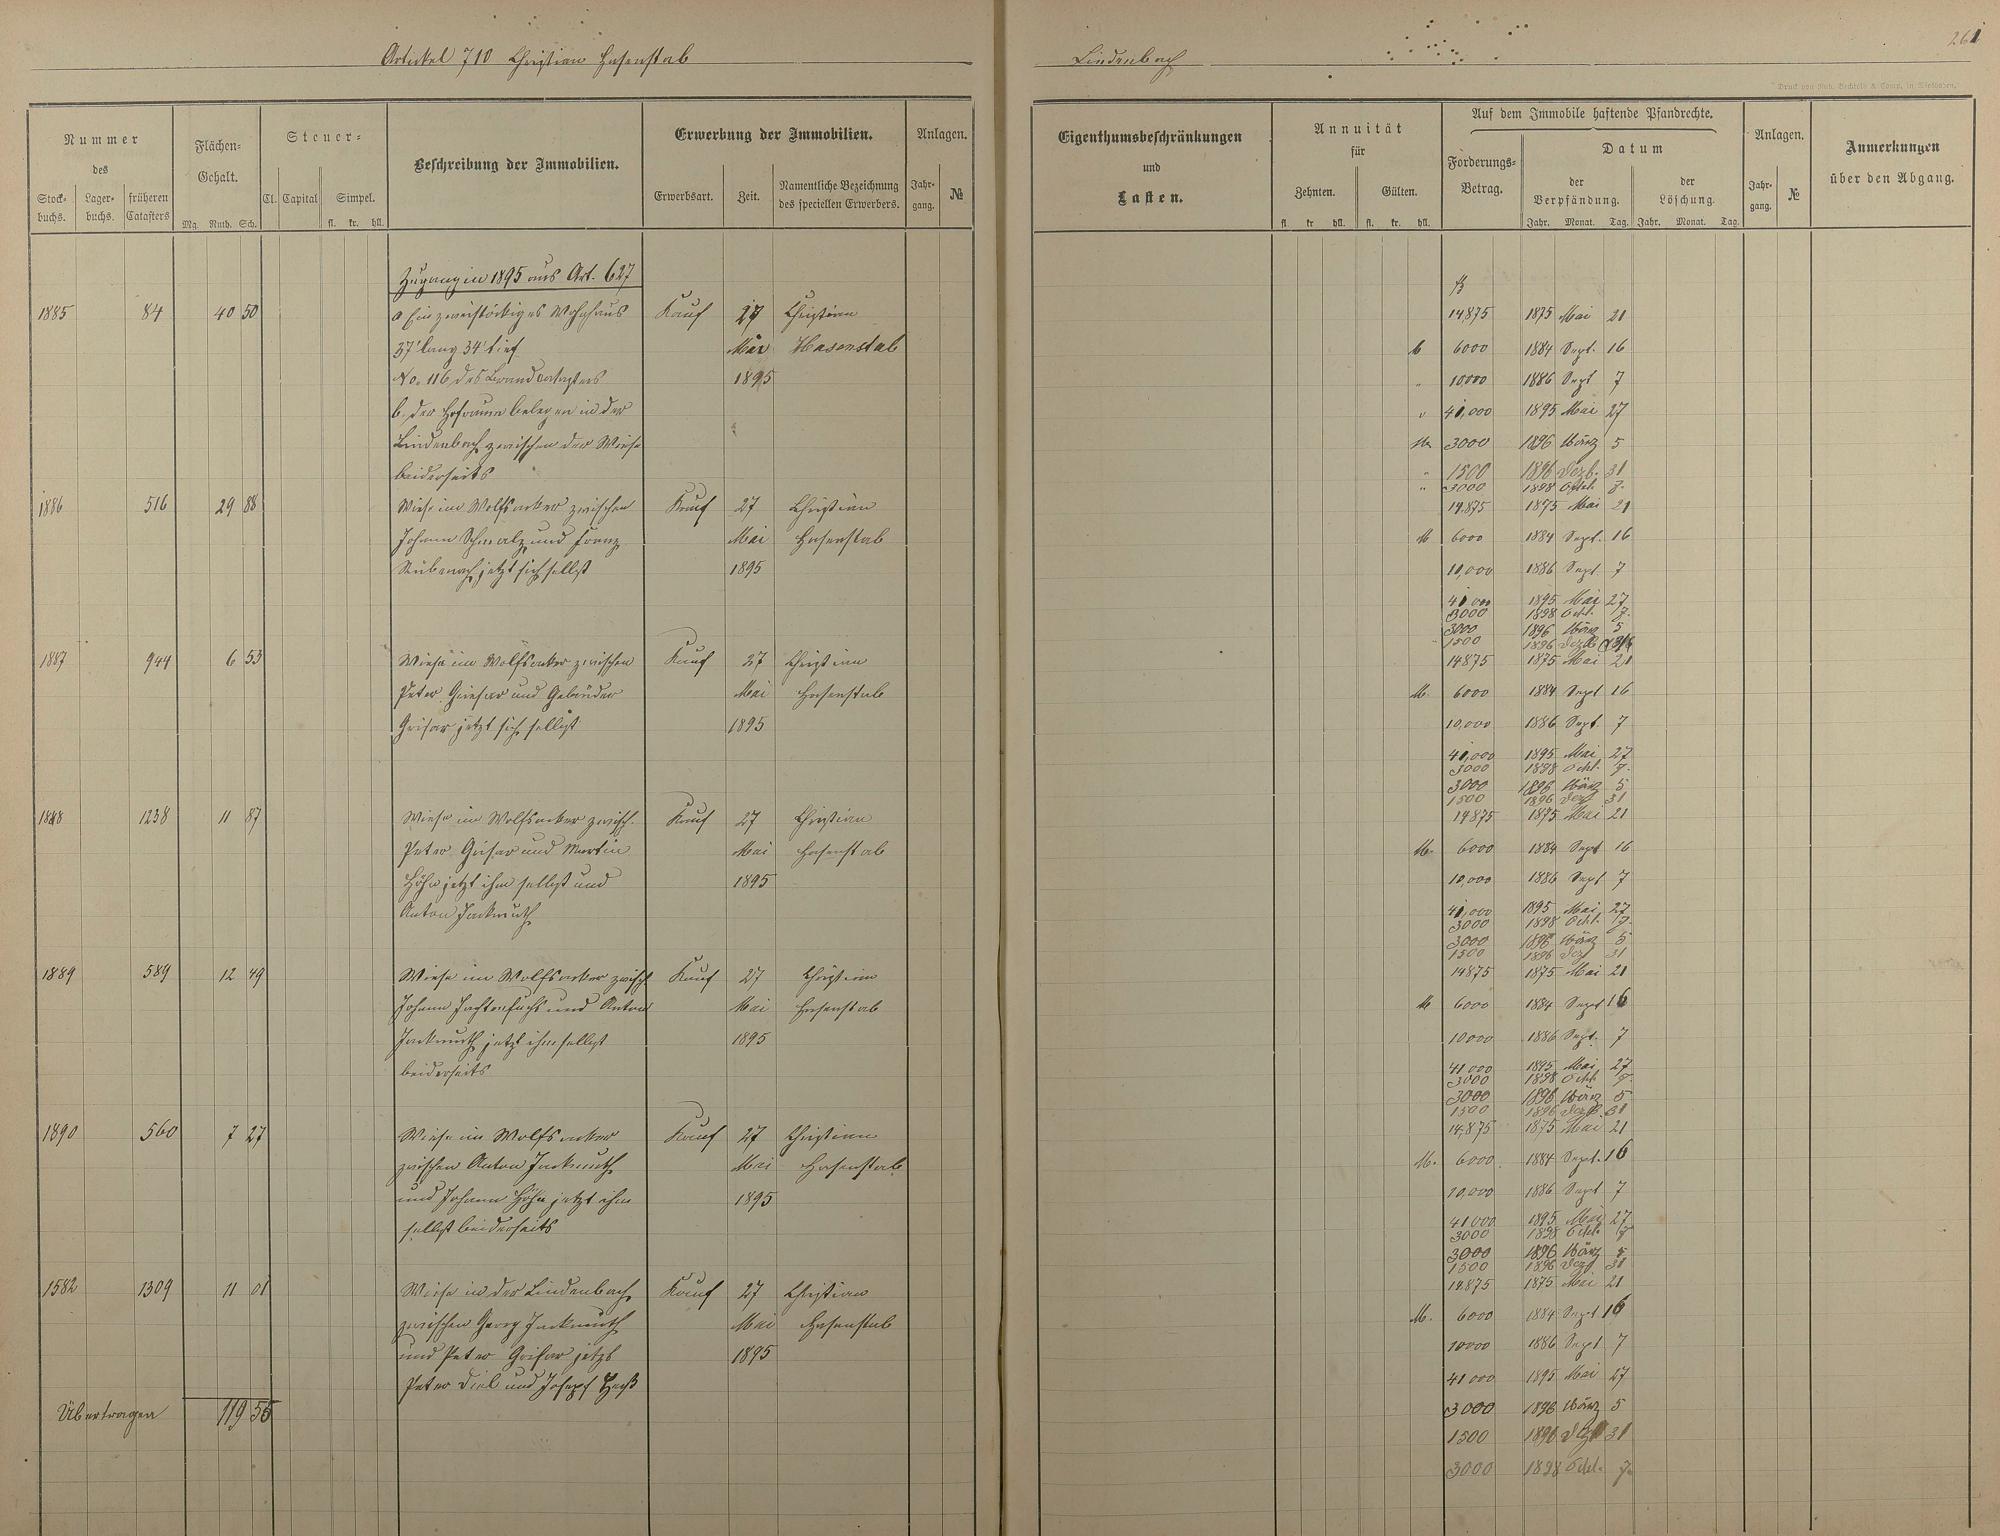 Artikel 710 Christian Hasenstab
Lindenbach
261
Druck von Rud. Bechtold & Comp. in Wiesbaden.
Nummer
des
Stock-buchs.
Lager-buchs.
früheren Catasters
Flächen-Gehalt.
Mg. Ruth. Sch.
Steuer-
Cl. Capital Simpel.
fl. kr. hll.
Beschreibung der Immobilien.
Erwerbung der Immobilien.
Erwerbsart. Zeit. Namentliche Bezeichnung des speciellen Erwerbers.
Anlagen.
Jahr-gang. №
Eigenthumsbeschränkungen
und
Lasten.
Annuität
für
Zehnten. Gülten.
fl. kr hll. fl. kr. hll.
Auf dem Immobile haftende Pfandrechte.
Forderungs-Betrag.
Datum
der Verpfändung. der Löschung.
Jahr. Monat. Tag. Jahr. Monat. Tag.
Anlagen.
Jahr-gang. №
Anmerkungen
über den Abgang.
Zugang in 1895 aus Art. 627
1885 84 40 50 a Ein zweistöckiges Wohnhaus Kauf 27 Christian 14,875 1875 Mai 21
37' lang 34' tief Mai Hasenstab 6000 1884 Sept. 16
No. 116 des Brandcatasters 1895 " 10000 1886 Sept 7
b, der Hofraum belegen in der " 41,000 1895 Mai 27
Lindenbach zwischen der Wiese M. 3000 1896 März 5
beiderseits " 1500 1896 Dezb. 31
" 3000 1898 Octb. 7.
1886 516 29 88 Wiese im Wolfsacker zwischen Kauf 27 Christian 14,875 1875 Mai 21
Johann Schmalz und Franz Mai Hasenstab M 6000 1884 Sept. 16
jetzt sich selbst 1895 10,000 1886 Sept. 7
41,000 1895 Mai 27
3000 1898 Octb. 7.
3000 1896 März 5
1500 1896 Dezb 31
1887 944 6 53 Wiese im Wolfsacker zwischen Kauf 27 Christian 14875 1875 Mai 21
Peter Grisar und Gebrüder Mai Hasenstab M. 6000 1884 Sept 16
Grisar jetzt sich selbst 1895 10,000 1886 Sept 7
41,000 1895 Mai 27
3000 1898 Octb. 7.
3000 1896 März 5
1500 1896 Dez 31
1888 1238 11 87 Wiese im Wolfsacker zwisch. Kauf 27 Christian 14875 1875 Mai 21
Peter Grisar und Martin Mai Hasenstab M. 6000 1884 Sept 16
Höhn jetzt ihm selbst und 1895 10,000 1886 Sept 7
Anton Jackmuth 41,000 1895 Mai 27
3000 1898 Octb. 7.
3000 1896 März 5
1500 1896 Dez 31
1889 589 12 49 Wiese im Wolfsacker zwisch Kauf 27 Christian 14875 1875 Mai 21
Johann und Anton Mai Hasenstab M 6000 1884 Sept 16
Jackmuth jetzt ihm selbst 1895 10000 1886 Sept. 7
beiderseits 41000 1895 Mai 27
3000 1898 Octb. 7.
3000 1896 März 5
1500 1896 Dezb. 31
1890 560 7 27 Wiese im Wolfsacker Kauf 27 Christian 14,875 1875 Mai 21
zwischen Anton Jackmuth Mai Hasenstab M. 6000 1884 Sept. 16
und Johann Höhn jetzt ihm 1895 10,000 1886 Sept 7
selbst beiderseits 41000 1895 Mai 27
3000 1898 Octb. 7
3000 1896 März 5
1500 1896 Dez 31
1582 1309 11 01 Wiese in der Lindenbach Kauf 27 Christian 14.875 1875 Mai 21
zwischen Georg Jackmuth Mai Hasenstab M. 6000 1884 Sept 16
und Peter Grisar jetzt 1895 10000 1886 Sept 7
Peter Diel und Joseph 41000 1895 Mai 27
Übertragen 119 55 3000 1896 März 5
1500 1896 Dez 31
3000 1898 Octb. 7.